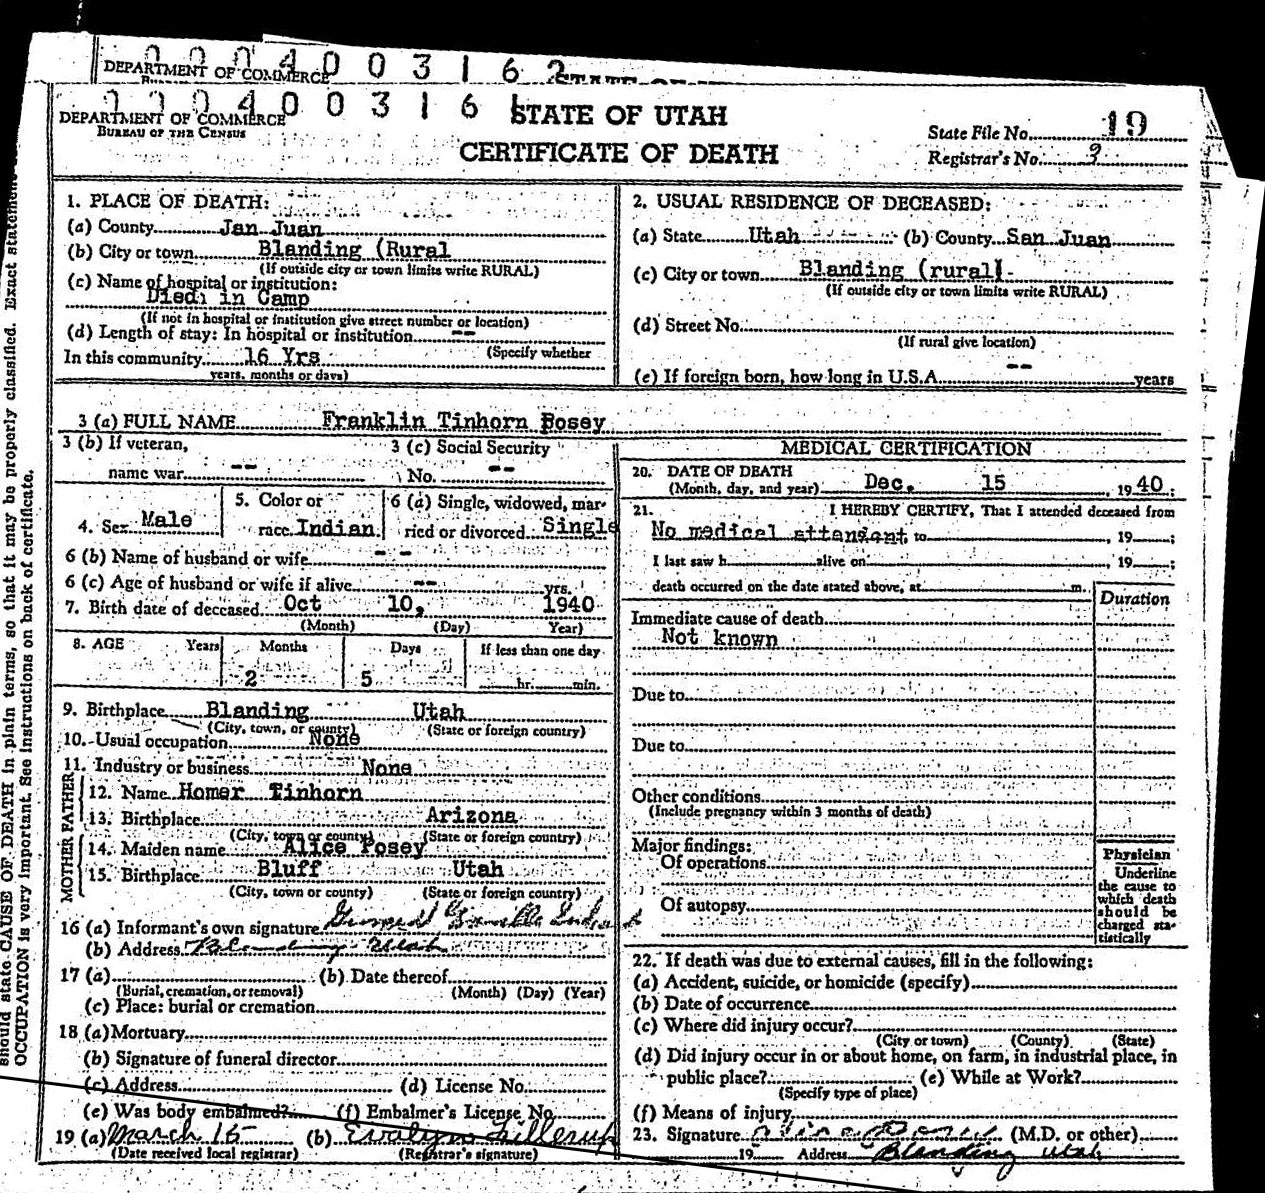 DEPARTMENT OF COMMERCE
0 0 0 4 0 0 3 1 6 2
0 0 0 4 0 0 3 1 6 1
DEPARTMENT OF COMMERCE
BUREAU OF THE CENSUS
STATE OF UTAH
CERTIFICATE OF DEATH
State File No. 19
Registrar's No. 3
should state CAUSE OF DEATH in plain terms, so that it may be properly classified. Exact statement
OCCUPATION is very important. See instructions on back of certificate.
1. PLACE OF DEATH:
(a) County Jan Juan
(b) City or town Blanding (Rural
(If outside city or town limits write RURAL)
(c) Name of hospital or institution:
Died in Camp
(If not in hospital or institution give street number or location)
(d) Length of stay: In hospital or institution --
(Specify whether
In this community 16 Yrs
years, months or days)
2. USUAL RESIDENCE OF DECEASED:
(a) State Utah (b) County San Juan
(c) City or town Blanding (rural)
(If outside city or town limits write RURAL)
(d) Street No.
(If rural give location)
(e) If foreign born, how long in U.S.A. -- years
3 (a) FULL NAME Franklin Tinhorn Posey
3 (b) If veteran,
name war --
3 (c) Social Security
No. --
4. Sex Male
5. Color or
race Indian
6 (a) Single, widowed, mar-
ried or divorced Single
6 (b) Name of husband or wife - -
6 (c) Age of husband or wife if alive -- yrs.
7. Birth date of deceased Oct 10, 1940
(Month) (Day) Year)
8. AGE Years Months Days If less than one day
2 5 hr. min.
9. Birthplace Blanding Utah
(City, town, or county) (State or foreign country)
10. Usual occupation None
11. Industry or business None
FATHER
12. Name Homer Tinhorn
13. Birthplace Arizona
(City, town or county) (State or foreign country)
MOTHER
14. Maiden name Alice Posey
15. Birthplace Bluff Utah
(City, town or county) (State or foreign country)
16 (a) Informant's own signature
(b) Address Blanding Utah
17 (a) (b) Date thereof
(Burial, cremation, or removal) (Month) (Day) (Year)
(c) Place: burial or cremation
18 (a) Mortuary
(b) Signature of funeral director
(c) Address (d) License No.
(e) Was body embalmed? (f) Embalmer's License No.
19 (a) March 15 (b) Evalyn Fillerup
(Date received local registrar) (Registrar's signature)
MEDICAL CERTIFICATION
20. DATE OF DEATH
(Month, day, and year) Dec. 15, 1940;
21. I HEREBY CERTIFY, That I attended deceased from
No medical attendant to , 19 ;
I last saw h alive on , 19 ;
death occurred on the date stated above, at m.
Duration
Immediate cause of death
Not known
Due to
Due to
Other conditions
(Include pregnancy within 3 months of death)
Major findings:
Of operations
Of autopsy
Physician
Underline
the cause to
which death
should be
charged sta-
tistically
22. If death was due to external causes, fill in the following:
(a) Accident, suicide, or homicide (specify)
(b) Date of occurrence
(c) Where did injury occur?
(City or town) (County) (State)
(d) Did injury occur in or about home, on farm, in industrial place, in
public place? (e) While at Work?
(Specify type of place)
(f) Means of injury
23. Signature (M.D. or other)
19 Address Blanding Utah